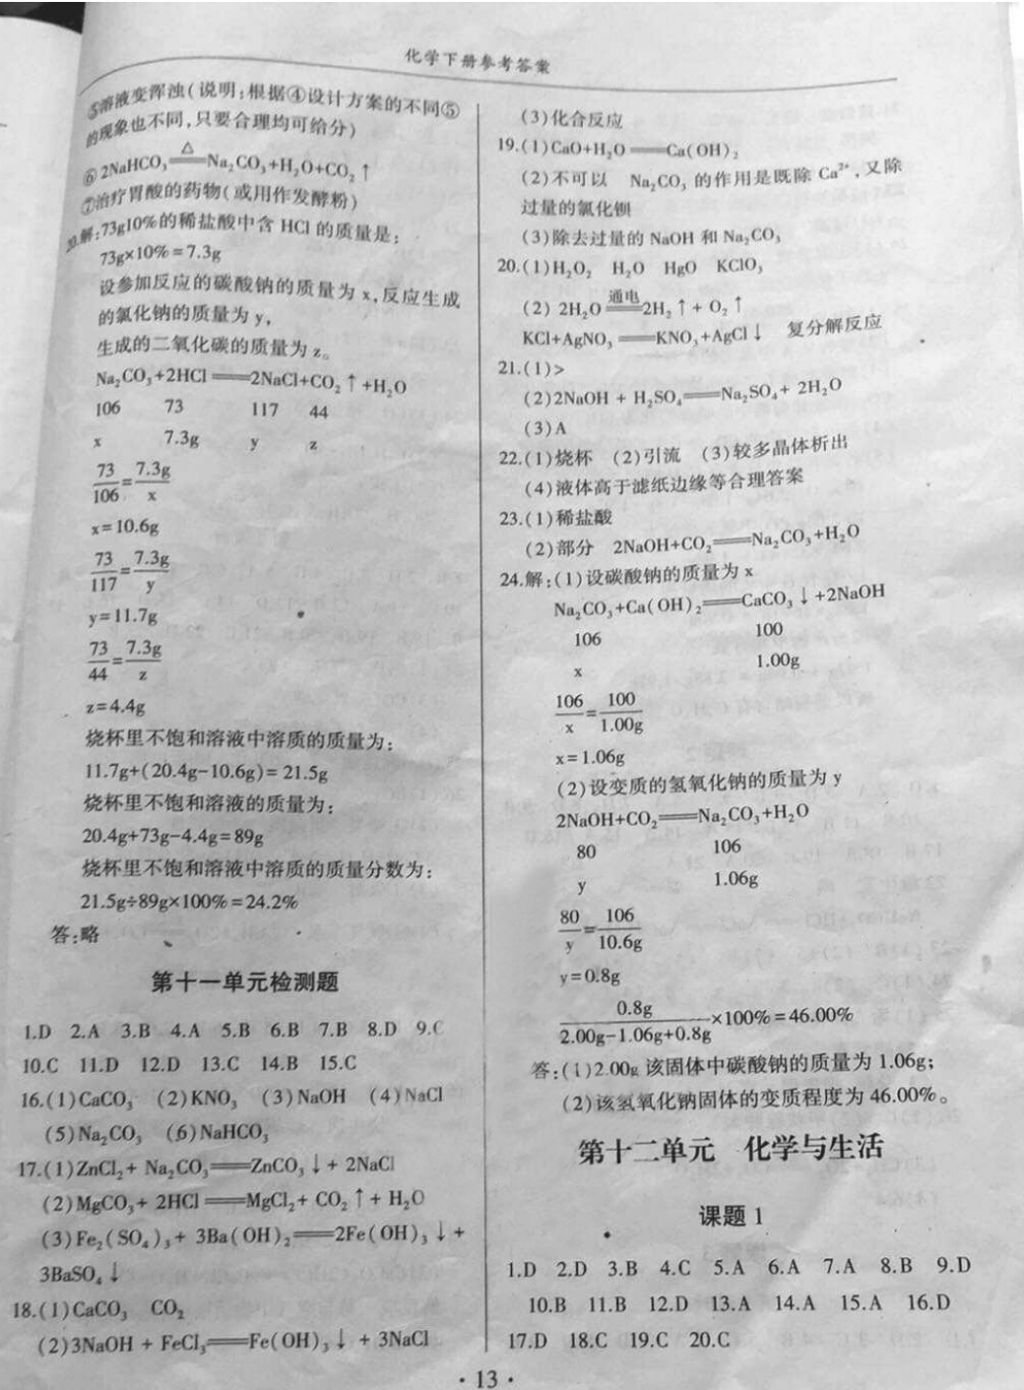 化学下册参考答案
⑤溶液变浑浊(说明:根据④设计方案的不同⑤
的现象也不同,只要合理均可给分)
⑥2NaHCO₃ ══△══ Na₂CO₃+H₂O+CO₂↑
⑦治疗胃酸的药物(或用作发酵粉)
20.解:73g10%的稀盐酸中含 HCl 的质量是:
73g×10%=7.3g
设参加反应的碳酸钠的质量为 x,反应生成
的氯化钠的质量为 y,
生成的二氧化碳的质量为 z。
Na₂CO₃+2HCl══2NaCl+CO₂↑+H₂O
106 73 117 44
x 7.3g y z
73/106=7.3g/x
x=10.6g
73/117=7.3g/y
y=11.7g
73/44=7.3g/z
z=4.4g
烧杯里不饱和溶液中溶质的质量为:
11.7g+(20.4g-10.6g)=21.5g
烧杯里不饱和溶液的质量为:
20.4g+73g-4.4g=89g
烧杯里不饱和溶液中溶质的质量分数为:
21.5g÷89g×100%=24.2%
答:略
第十一单元检测题
1.D 2.A 3.B 4.A 5.B 6.B 7.B 8.D 9.C
10.C 11.D 12.D 13.C 14.B 15.C
16.(1)CaCO₃ (2)KNO₃ (3)NaOH (4)NaCl
(5)Na₂CO₃ (6)NaHCO₃
17.(1)ZnCl₂+ Na₂CO₃══ZnCO₃↓+ 2NaCl
(2)MgCO₃+ 2HCl══MgCl₂+ CO₂↑+ H₂O
(3)Fe₂(SO₄)₃+ 3Ba(OH)₂══2Fe(OH)₃↓+
3BaSO₄↓
18.(1)CaCO₃ CO₂
(2)3NaOH + FeCl₃══Fe(OH)₃↓ + 3NaCl
(3)化合反应
19.(1)CaO+H₂O══Ca(OH)₂
(2)不可以 Na₂CO₃ 的作用是既除 Ca²⁺,又除
过量的氯化钡
(3)除去过量的 NaOH 和 Na₂CO₃
20.(1)H₂O₂ H₂O HgO KClO₃
(2) 2H₂O ══通电══ 2H₂↑+ O₂↑
KCl+AgNO₃══KNO₃+AgCl↓ 复分解反应
21.(1)>
(2)2NaOH + H₂SO₄══Na₂SO₄+ 2H₂O
(3)A
22.(1)烧杯 (2)引流 (3)较多晶体析出
(4)液体高于滤纸边缘等合理答案
23.(1)稀盐酸
(2)部分 2NaOH+CO₂══Na₂CO₃+H₂O
24.解:(1)设碳酸钠的质量为 x
Na₂CO₃+Ca(OH)₂══CaCO₃↓+2NaOH
106 100
x 1.00g
106/x=100/1.00g
x=1.06g
(2)设变质的氢氧化钠的质量为 y
2NaOH+CO₂══Na₂CO₃+H₂O
80 106
y 1.06g
80/y=106/10.6g
y=0.8g
0.8g/2.00g-1.06g+0.8g×100%=46.00%
答:(1)2.00g 该固体中碳酸钠的质量为 1.06g;
(2)该氢氧化钠固体的变质程度为 46.00%。
第十二单元 化学与生活
课题 1
1.D 2.D 3.B 4.C 5.A 6.A 7.A 8.B 9.D
10.B 11.B 12.D 13.A 14.A 15.A 16.D
17.D 18.C 19.C 20.C
· 13 ·